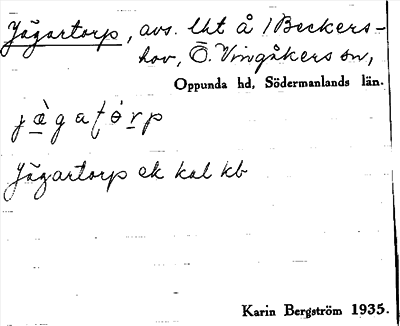 Jägartorp, avs. lht å 1 Beckers-
hov, Ö. Vingåkers sn,
Oppunda hd, Södermanlands län.
Jägartorp ek kal kb
Karin Bergström 1935.